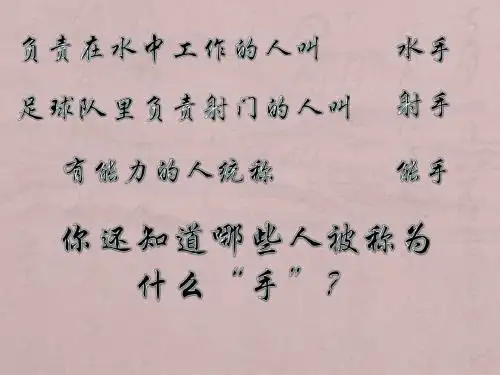 负责在水中工作的人叫 水手
足球队里负责射门的人叫 射手
有能力的人统称 能手
你还知道哪些人被称为
什么“手”?